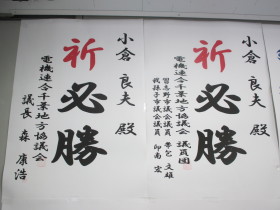 小倉 良夫 殿
祈
必勝
電機連合千葉地方協議会
議長 森 康浩
小倉 良夫 殿
祈
必勝
電機連合千葉地方協議会 議員団
習志野市議会議員
文雄
我孫子市議会議員 印南 宏